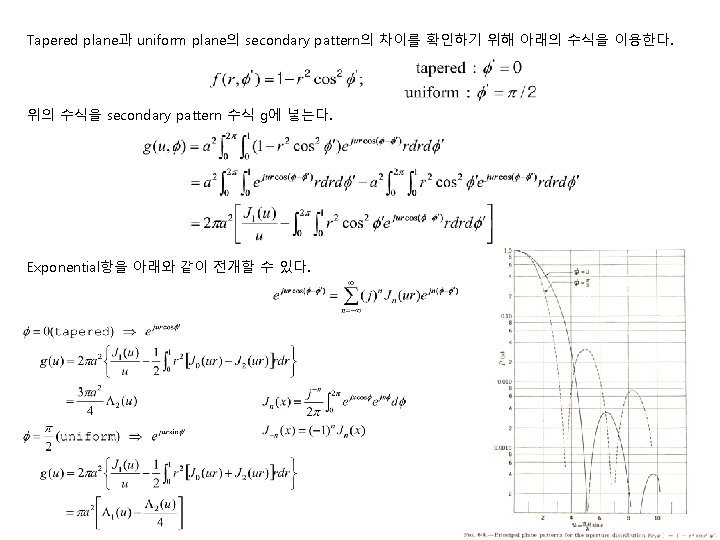 Tapered plane과 uniform plane의 secondary pattern의 차이를 확인하기 위해 아래의 수식을 이용한다.
f(r,ϕ')=1−r²cos²ϕ'; tapered : ϕ'=0
uniform : ϕ'=π/2
위의 수식을 secondary pattern 수식 g에 넣는다.
g(u,ϕ)=a²∫₀^{2π}∫₀^{1}(1−r²cos²ϕ')e^{jurcos(ϕ−ϕ')}rdrdϕ'
=a²∫₀^{2π}∫₀^{1}e^{jurcos(ϕ−ϕ')}rdrdϕ'−a²∫₀^{2π}∫₀^{1}r²cos²ϕ'e^{jurcos(ϕ−ϕ')}rdrdϕ'
=2πa²[J₁(u)/u−∫₀^{2π}∫₀^{1}r²cos²ϕ'e^{jurcos(ϕ−ϕ')}rdrdϕ']
Exponential항을 아래와 같이 전개할 수 있다.
e^{jurcos(ϕ−ϕ')}=∑_{n=−∞}^{∞}(j)ⁿJₙ(ur)e^{jn(ϕ−ϕ')}
ϕ=0(tapered) ⇒ e^{jurcosϕ'}
g(u)=2πa²{J₁(u)/u−1/2∫₀^{1}r²[J₀(ur)−J₂(ur)]rdr}
=3πa²/4 Λ₂(u)
Jₙ(x)=j^{−n}/2π∫₀^{2π}e^{jxcosϕ}e^{jnϕ}dϕ
J₋ₙ(x)=(−1)ⁿJₙ(x)
ϕ=π/2(uniform) ⇒ e^{jursinϕ'}
g(u)=2πa²{J₁(u)/u−1/2∫₀^{1}r²[J₀(ur)+J₂(ur)]rdr}
=πa²[Λ₁(u)−Λ₂(u)/4]
1.0
8
6
4
2
0.10
8
6
4
2
0.010
8
6
4
2
0.0010
8
6
4
2
0.0001
2 4 6 8 10
Principal plane patterns for the aperture distribution